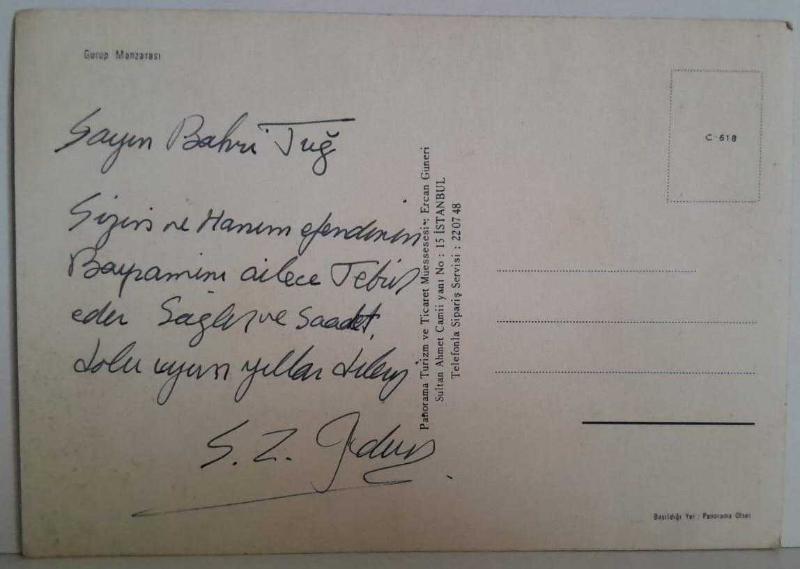 Gurup Manzarası
Sayın Bahri Tuğ
Sizin ve Hanımefendinin
Bayramını ailece Tebrik
eder Sağlık ve Saadet
dolu uzun yıllar dileriz
S. Z.
Panorama Turizm ve Ticaret Müessesesi: Ercan Güneri
Sultan Ahmet Camii yanı No : 15 İSTANBUL
Telefonla Sipariş Servisi : 22 07 48
C-618
Basıldığı Yer : Panorama Ofset